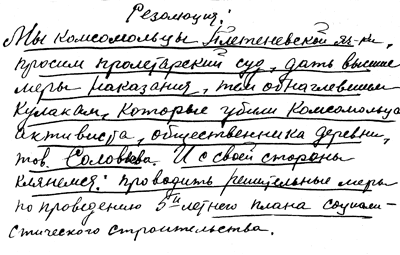 Резолюция:
Мы комсомольцы Плетеневской яч-ки,
просим пролетарский суд, дать высшие
меры наказания, тем обнаглевшим
Кулакам, которые убили комсомольца
активиста, общественника деревни,
тов. Соловьева. И с своей стороны
клянемся: проводить решительные меры
по проведению 5ти летнего плана социали-
стического строительства.